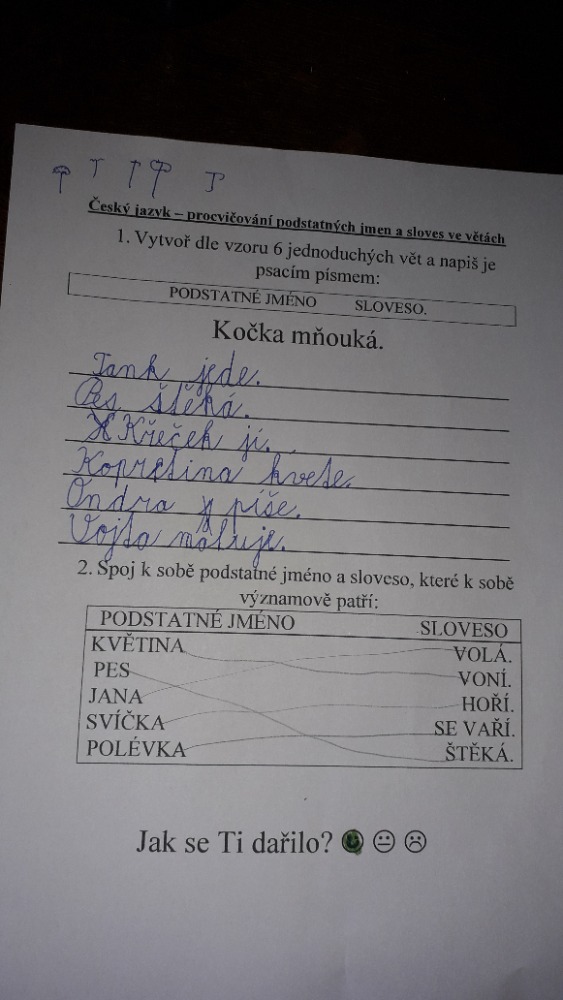 Český jazyk – procvičování podstatných jmen a sloves ve větách
1. Vytvoř dle vzoru 6 jednoduchých vět a napiš je
psacím písmem:
PODSTATNÉ JMÉNO SLOVESO.
Kočka mňouká.
Tank jede.
Pes štěká.
Křeček jí.
Kopretina kvete.
Ondra píše.
Vojta maluje.
2. Spoj k sobě podstatné jméno a sloveso, které k sobě
významově patří:
PODSTATNÉ JMÉNO SLOVESO
KVĚTINA VOLÁ.
PES VONÍ.
JANA HOŘÍ.
SVÍČKA SE VAŘÍ.
POLÉVKA ŠTĚKÁ.
Jak se Ti dařilo?